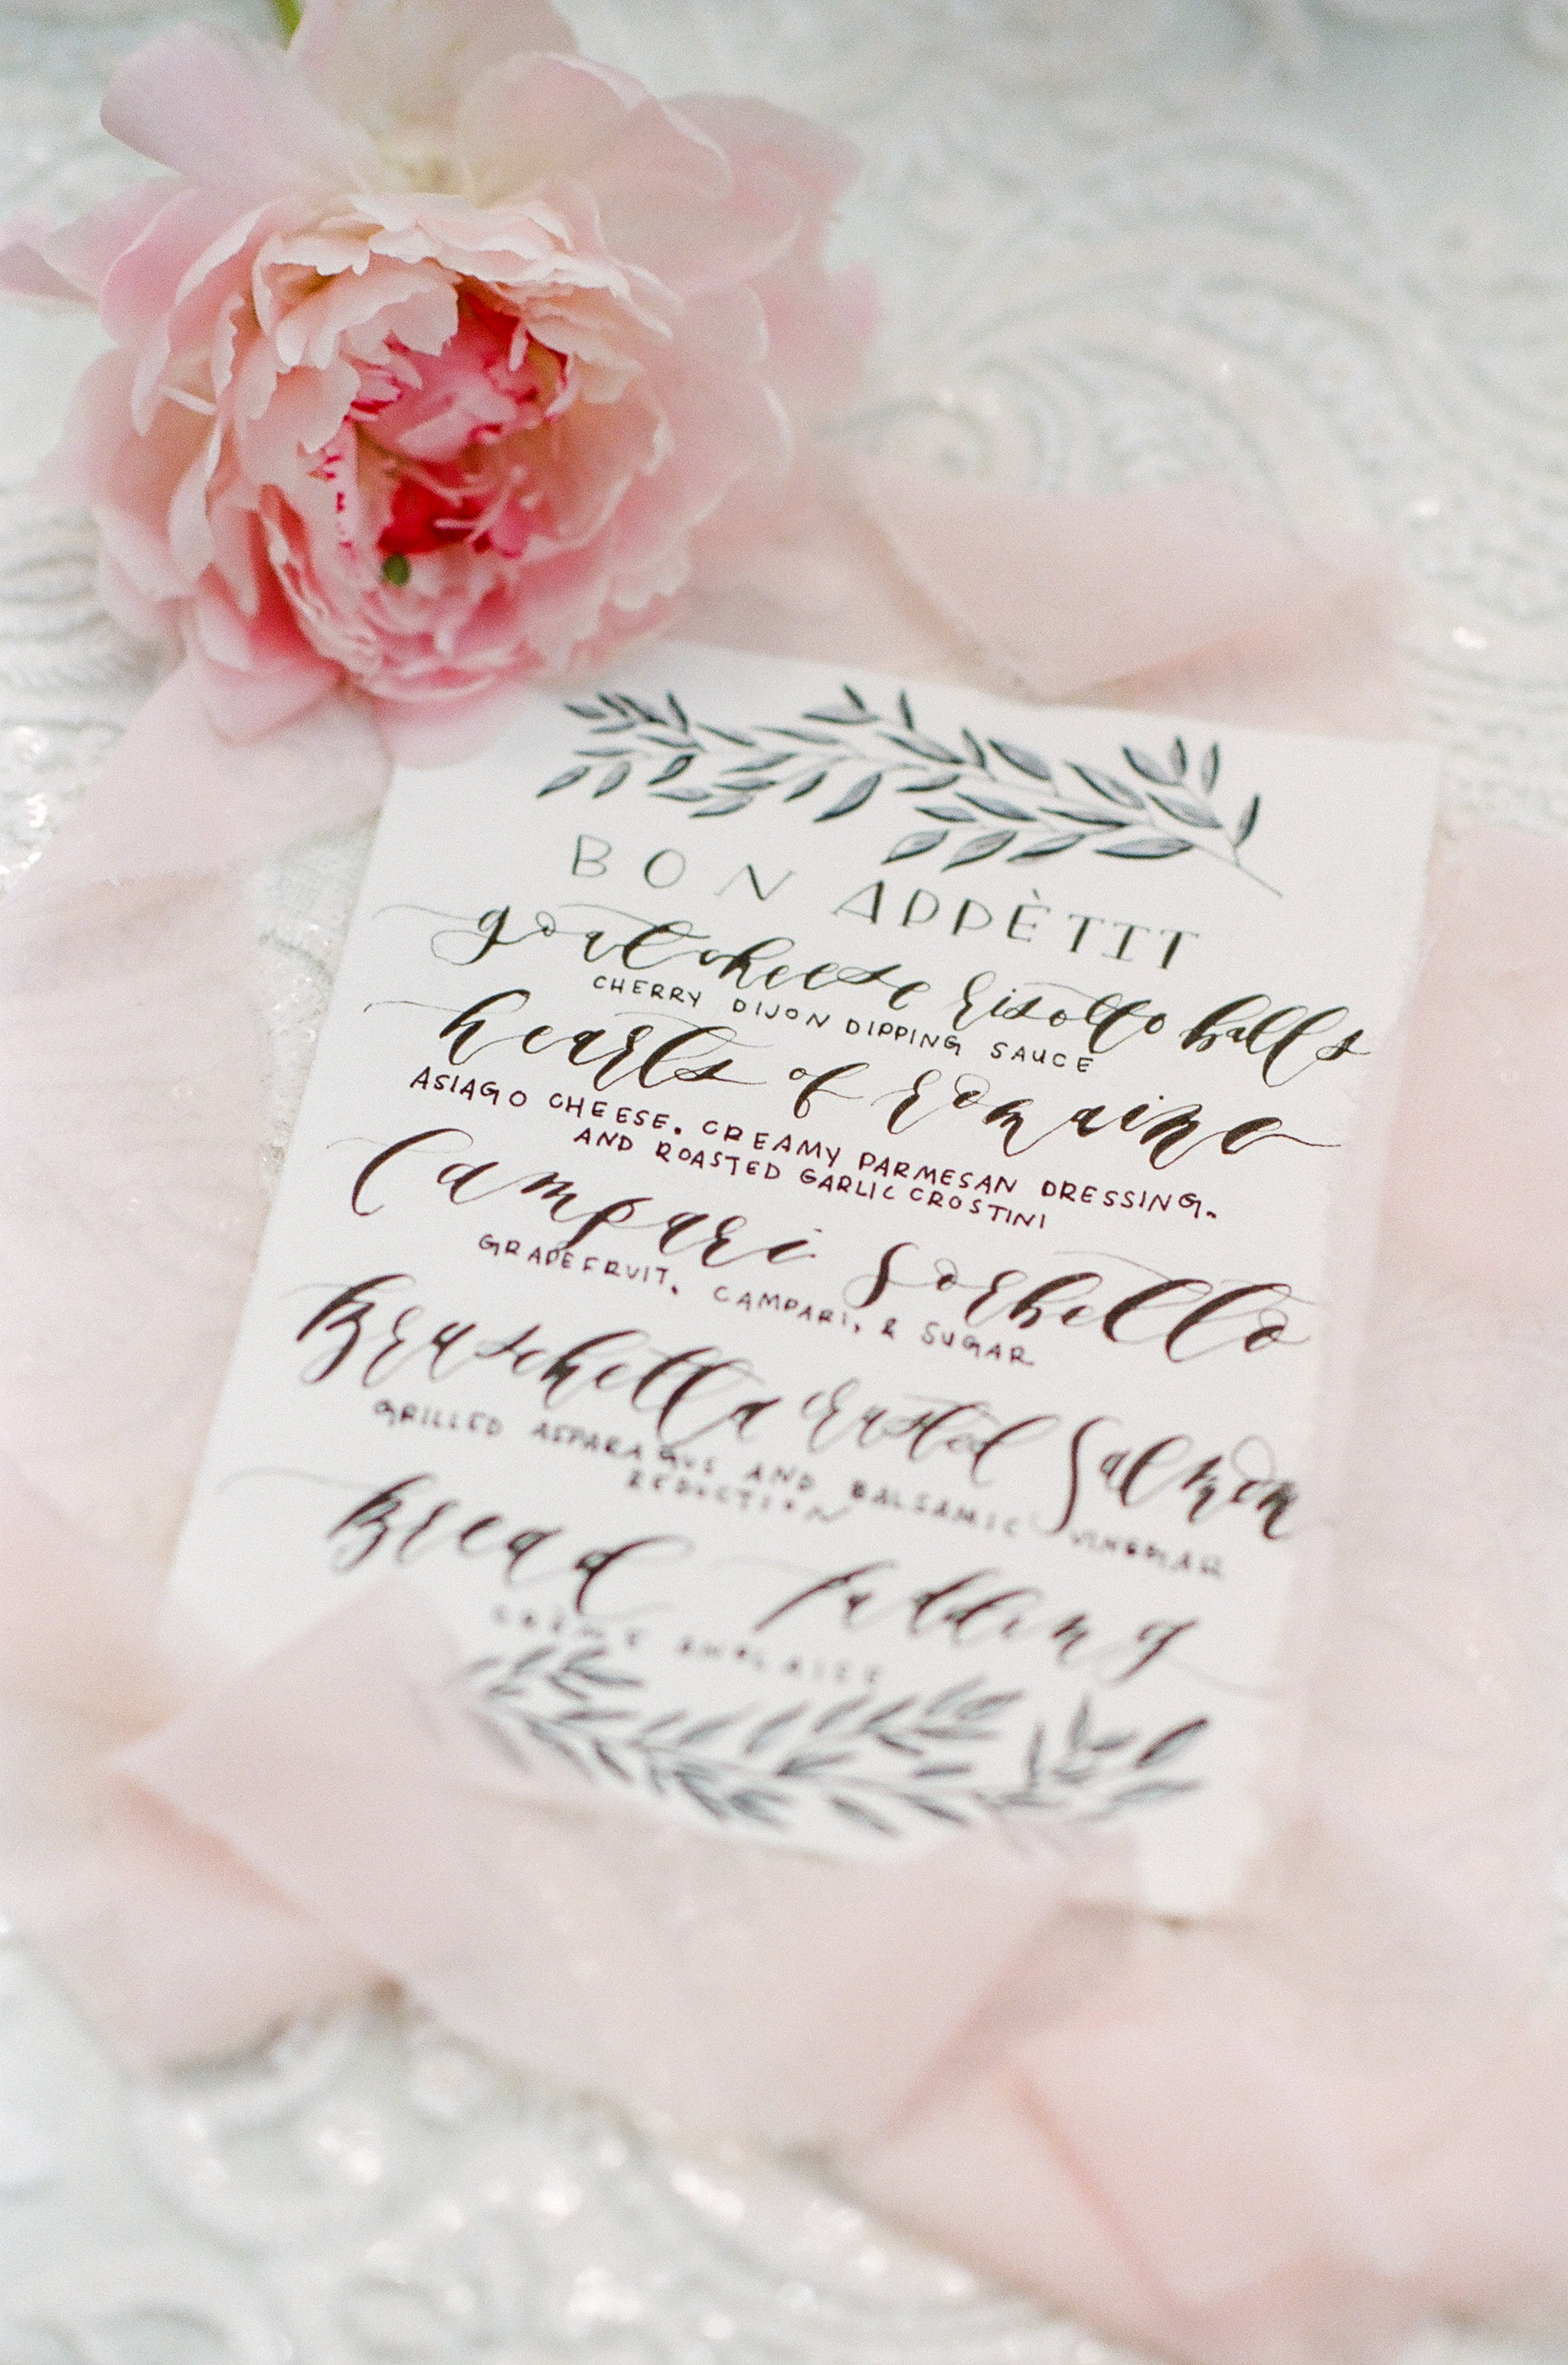 BON APPÈTIT
goat cheese risotto balls
CHERRY DIJON DIPPING SAUCE
hearts of romaine
ASIAGO CHEESE, CREAMY PARMESAN DRESSING,
AND ROASTED GARLIC CROSTINI
Campari Sorbetto
GRAPEFRUIT, CAMPARI, & SUGAR
Bruschetta Crusted Salmon
GRILLED ASPARAGUS AND BALSAMIC VINEGAR
REDUCTION
Bread Pudding
CRÈME ANGLAISE